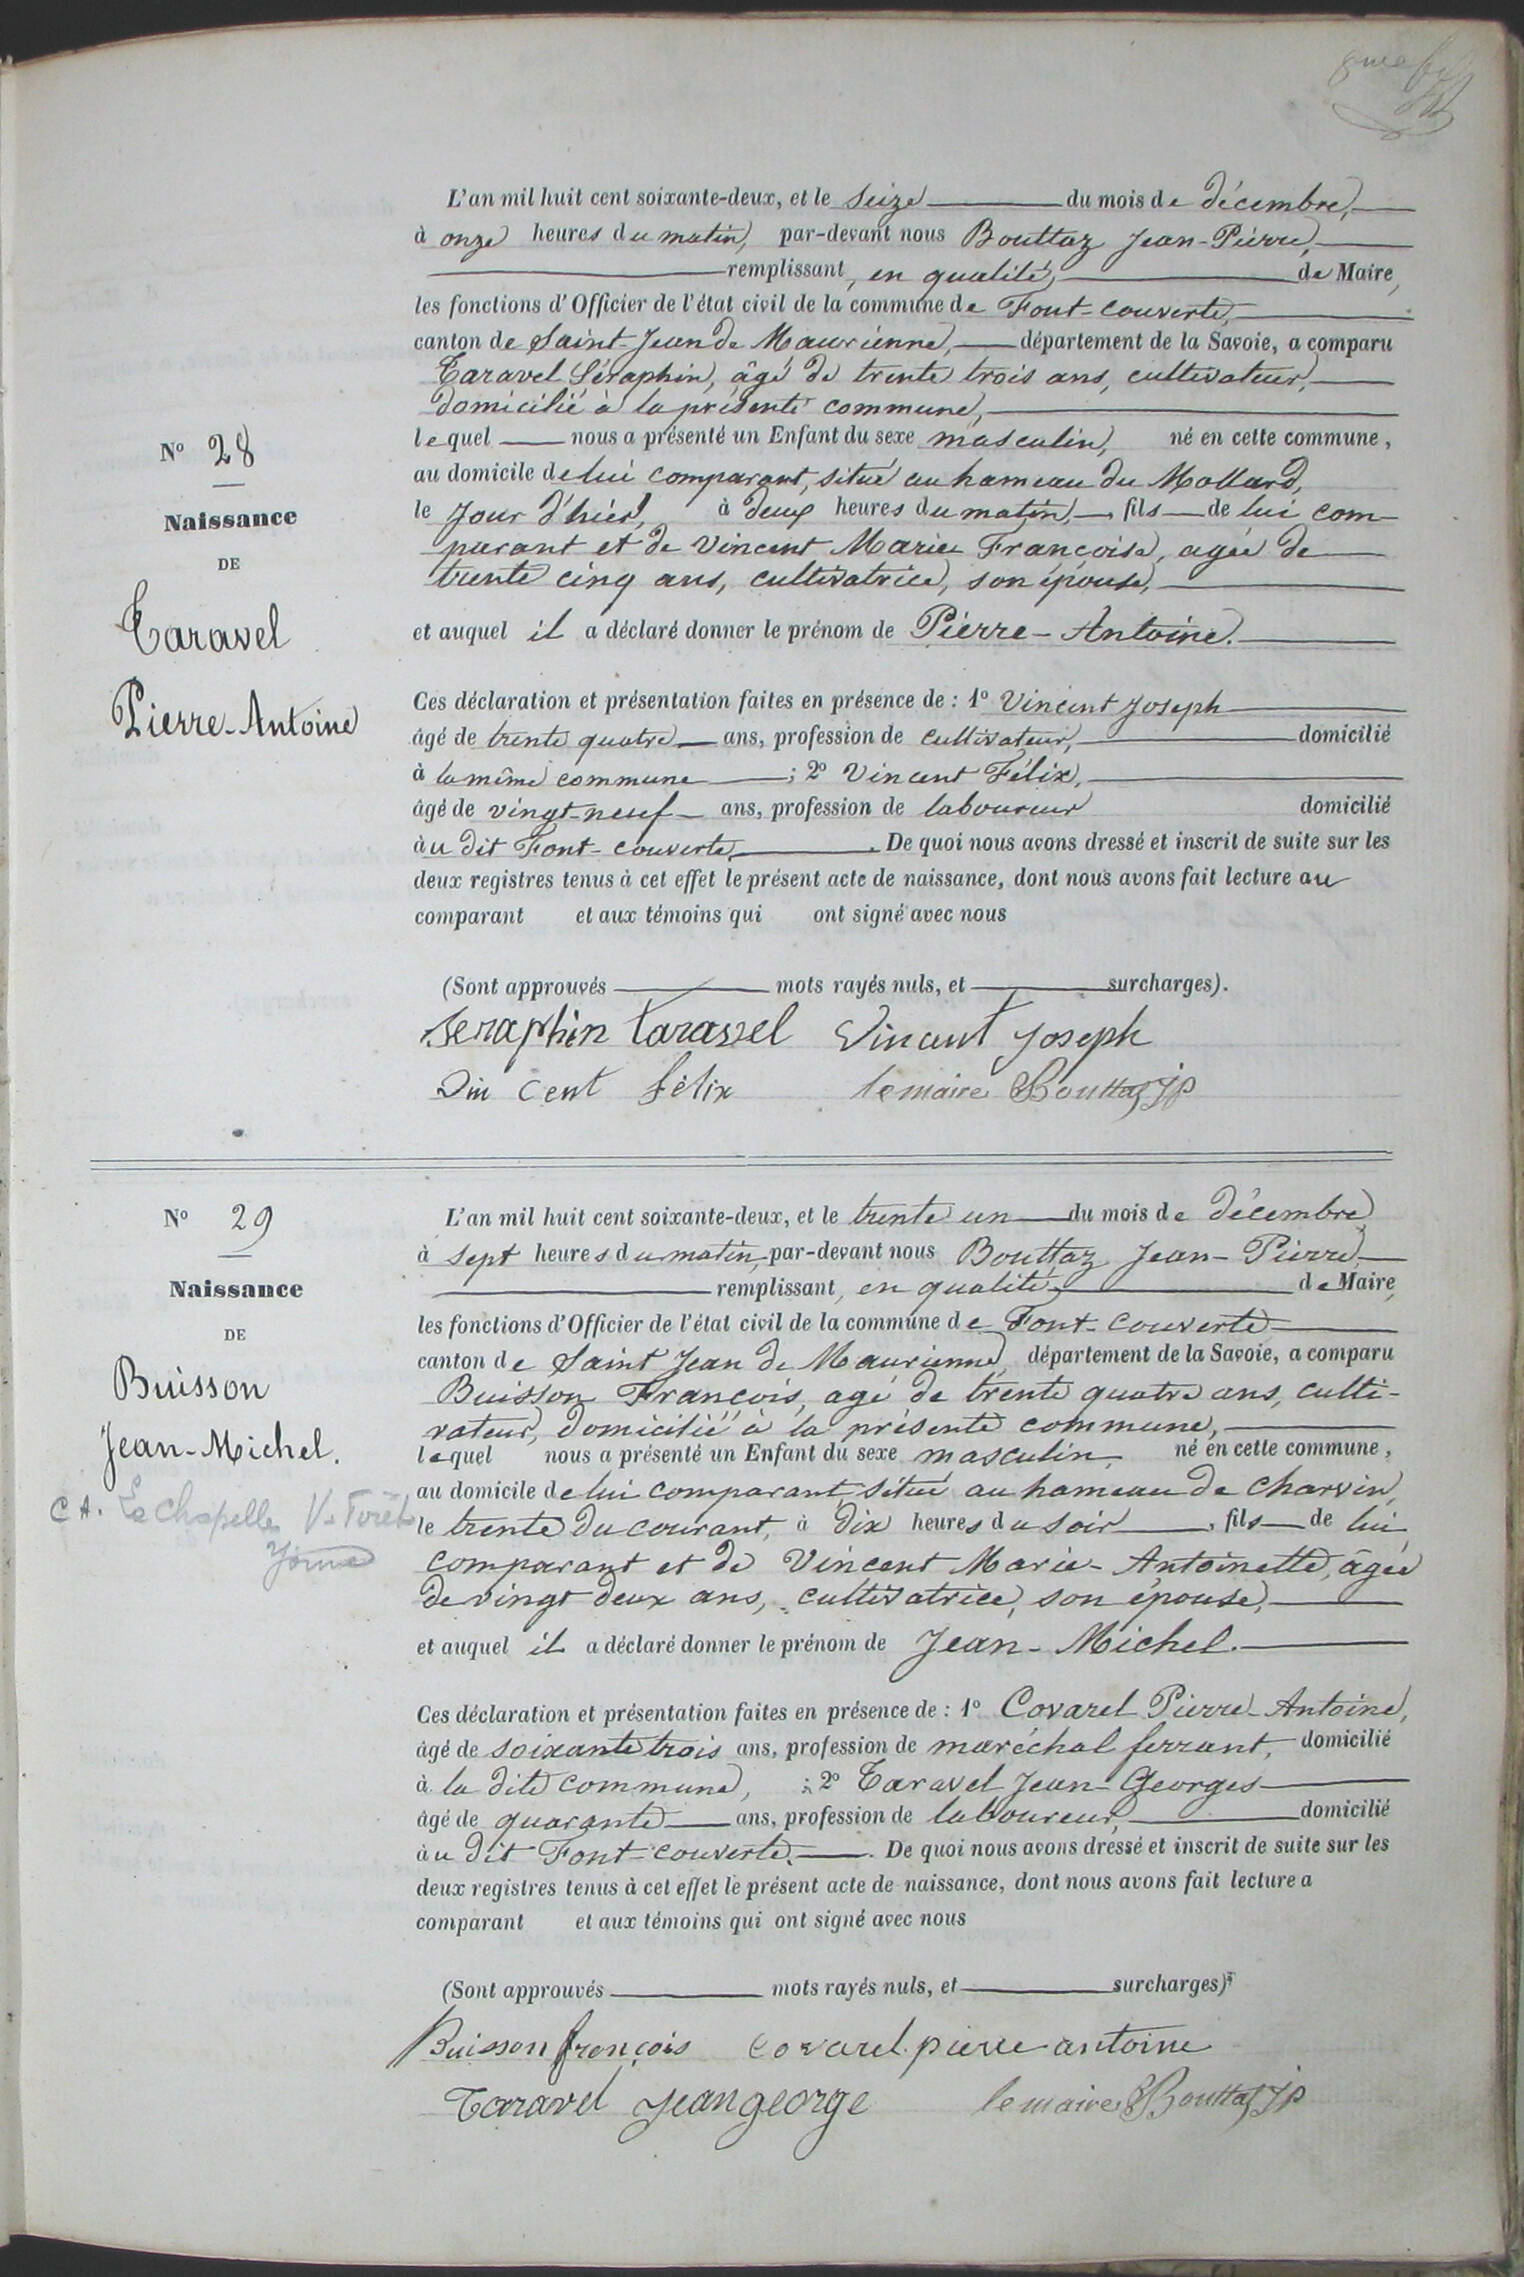 L'an mil huit cent soixante-deux, et le seize du mois de décembre,
à onze heures du matin, par-devant nous Bouttaz Jean-Pierre,
remplissant, en qualité, de Maire,
les fonctions d'Officier de l'état civil de la commune de Font-couverte,
canton de Saint-Jean de Maurienne, département de la Savoie, a comparu
Taravel Séraphin, âgé de trente trois ans, cultivateur,
domicilié à la présente commune,
lequel nous a présenté un Enfant du sexe masculin, né en cette commune,
au domicile de lui comparant, situé au hameau du Mollard,
le jour d'hier, à deux heures du matin, fils de lui com-
parant et de Vincent Marie Françoise, agée de
trente cinq ans, cultivatrice, son épouse,
et auquel il a déclaré donner le prénom de Pierre-Antoine.
N° 28
Naissance
DE
Taravel
Pierre-Antoine
Ces déclaration et présentation faites en présence de : 1° Vincent Joseph
âgé de trente quatre ans, profession de cultivateur, domicilié
à la même commune ; 2° Vincent Félix,
âgé de vingt-neuf ans, profession de laboureur domicilié
à u dit Font-couverte. De quoi nous avons dressé et inscrit de suite sur les
deux registres tenus à cet effet le présent acte de naissance, dont nous avons fait lecture au
comparant et aux témoins qui ont signé avec nous
(Sont approuvés mots rayés nuls, et surcharges).
Seraphin taravel Vincent Joseph
Vin cent félix le maire Bouttaz jp
N° 29
Naissance
DE
Buisson
Jean-Michel.
C A. La Chapelle V. Forêt
Yonne
L'an mil huit cent soixante-deux, et le trente un du mois de décembre
à sept heures du matin, par-devant nous Bouttaz Jean-Pierre,
remplissant, en qualité, de Maire,
les fonctions d'Officier de l'état civil de la commune de Font-couverte
canton de Saint Jean de Maurienne, département de la Savoie, a comparu
Buisson François, agé de trente quatre ans, culti-
vateur, domicilié à la présente commune,
lequel nous a présenté un Enfant du sexe masculin, né en cette commune,
au domicile de lui comparant, situé au hameau de Charvin,
le trente du courant, à dix heures du soir, fils de lui
comparant et de Vincent Marie-Antoinette, âgée
de vingt deux ans, cultivatrice, son épouse,
et auquel il a déclaré donner le prénom de Jean-Michel.
Ces déclaration et présentation faites en présence de : 1° Covarel Pierre-Antoine,
âgé de soixante trois ans, profession de maréchal ferrant, domicilié
à la dite commune, ; 2° Taravel Jean-Georges
âgé de quarante ans, profession de laboureur, domicilié
à u dit Font-couverte. De quoi nous avons dressé et inscrit de suite sur les
deux registres tenus à cet effet le présent acte de naissance, dont nous avons fait lecture a
comparant et aux témoins qui ont signé avec nous
(Sont approuvés mots rayés nuls, et surcharges)
Buisson françois covarel pierre antoine
Taravel Jean george le maire Bouttaz jp